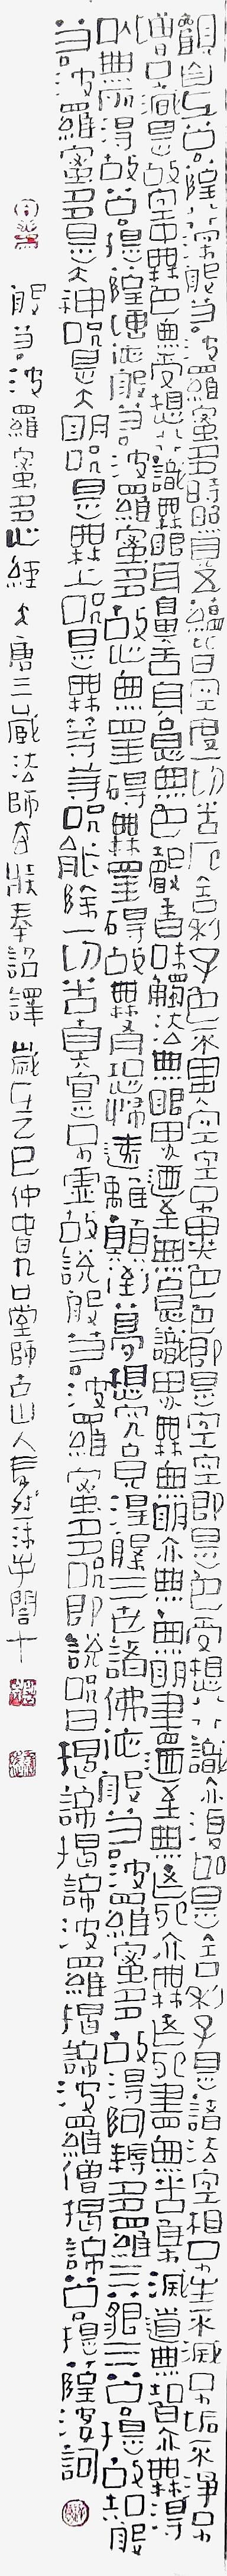 觀自在菩薩行深般若波羅蜜多時照見五蘊皆空度一切苦厄舍利子色不異空空不異色色即是空空即是色受想行識亦復如是舍利子是諸法空相不生不滅不垢不淨不
增不減是故空中無色無受想行識無眼耳鼻舌身意無色聲香味觸法無眼界乃至無意識界無無明亦無無明盡乃至無老死亦無老死盡無苦集滅道無智亦無得
以無所得故菩提薩埵依般若波羅蜜多故心無罣礙無罣礙故無有恐怖遠離顛倒夢想究竟涅槃三世諸佛依般若波羅蜜多故得阿耨多羅三藐三菩提故知般
若波羅蜜多是大神咒是大明咒是無上咒是無等等咒能除一切苦真實不虛故說般若波羅蜜多咒即說咒曰揭諦揭諦波羅揭諦波羅僧揭諦菩提薩婆訶
般若波羅蜜多心經 大唐三藏法師玄奘奉詔譯 歲在乙巳仲春九口堂師古山人沐手